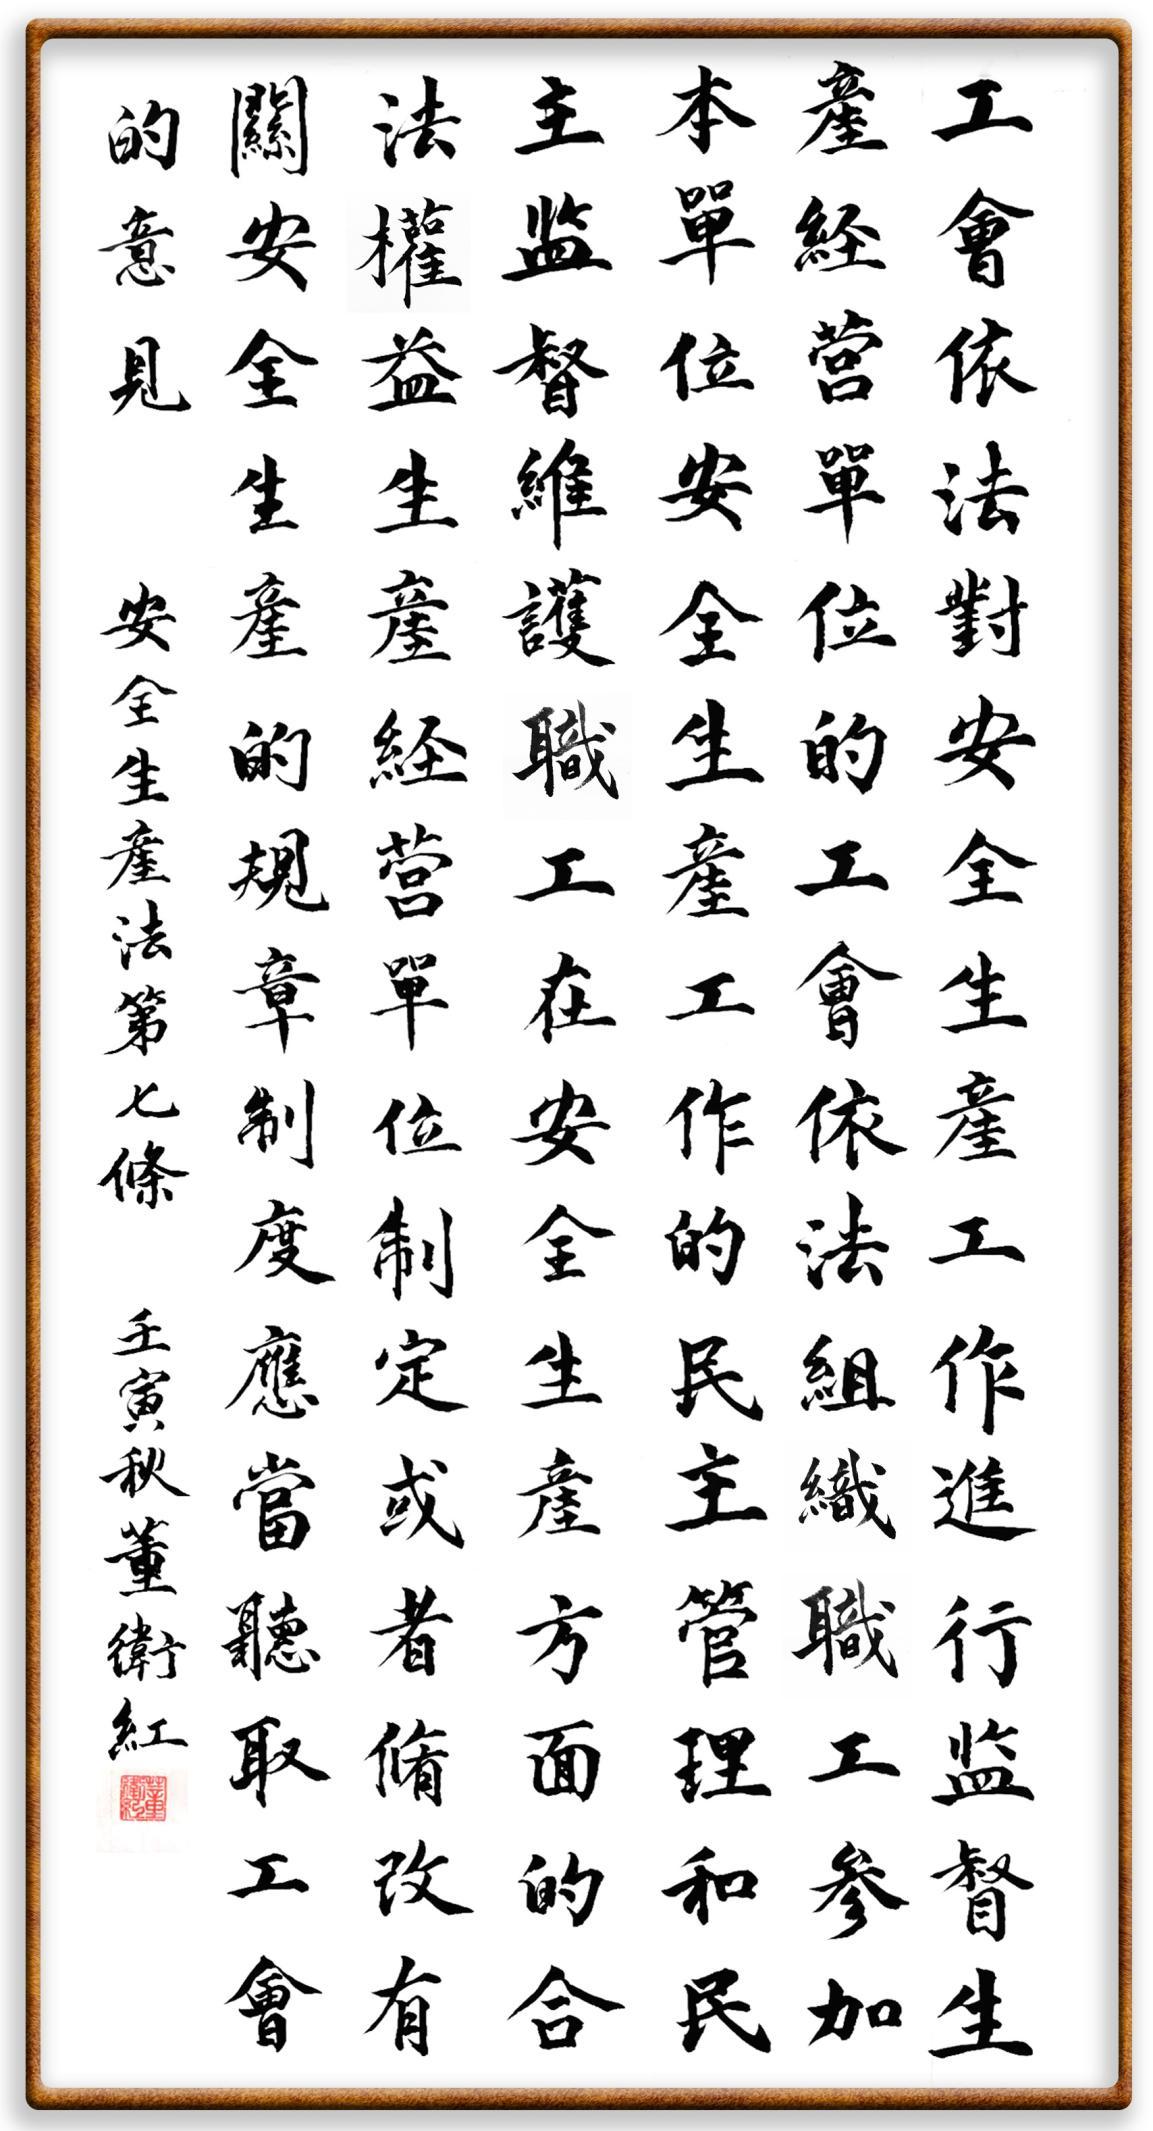 工會依法對安全生產工作進行监督生
產経营單位的工會依法組織職工參加
本單位安全生產工作的民主管理和民
主监督維護職工在安全生產方面的合
法權益生產経营單位制定或者脩改有
關安全生產的規章制度應當聽取工會
的意見
安全生產法第七條
壬寅秋董衛紅